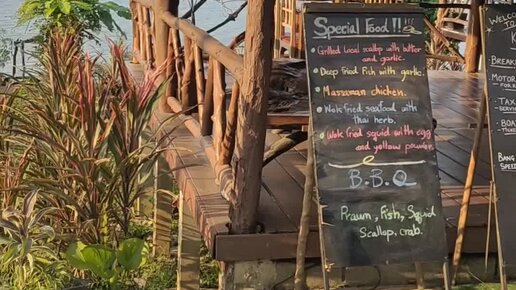 Special Food !!!
Grilled local scallop with butter
and garlic.
Deep Fried Fish with garlic.
Massaman chicken.
Wok fried seafood with
thai herb.
Wok fried squid with egg
and yellow powder.
B.B.Q
Prawn, Fish, Squid
Scallop, crab.
Welcome
K
BREAK
MOTOR
TAX
BOA
BANG
SPEI